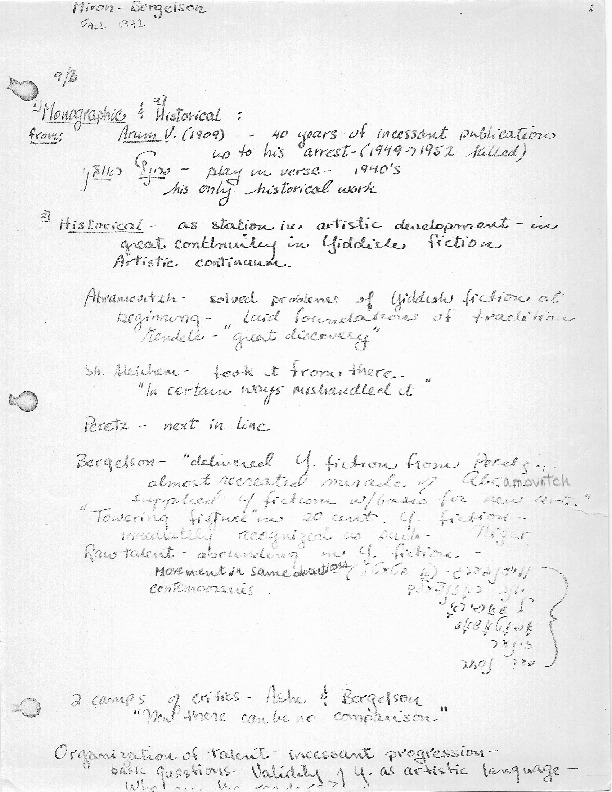 Miron - Bergelson
1
9/8
1) Monographic & 2) Historical :
from: Arum V. (1909) - 40 years of incessant publication
up to his arrest - (1949 → 1952 killed)
- play in verse - 1940's
his only historical work
2) Historical - as station in artistic development - in
great continuity in Yiddish fiction
Artistic continuum.
Abramovitch - solved problems of Yiddish fiction at
beginning - laid foundations of tradition
Mendele - "great discovery"
Sh. Aleichem - took it from there..
"In certain ways mishandled it"
Peretz - next in line
Bergelson - "delivered Y. fiction from Peretz..
almost recreated miracle of Abramovitch
supplied Y fiction w/basis for new cent."
"Towering figure" in 20 cent. Y. fiction -
immediately recognized as such - Niger
Raw talent - abounding in Y. fiction -
Movement in same direction
contemporaries.
2 camps of critics - Ashe & Bergelson
"Now there can be no comparison"
Organization of talent - incessant progression -
basic questions - Validity of Y. as artistic language -